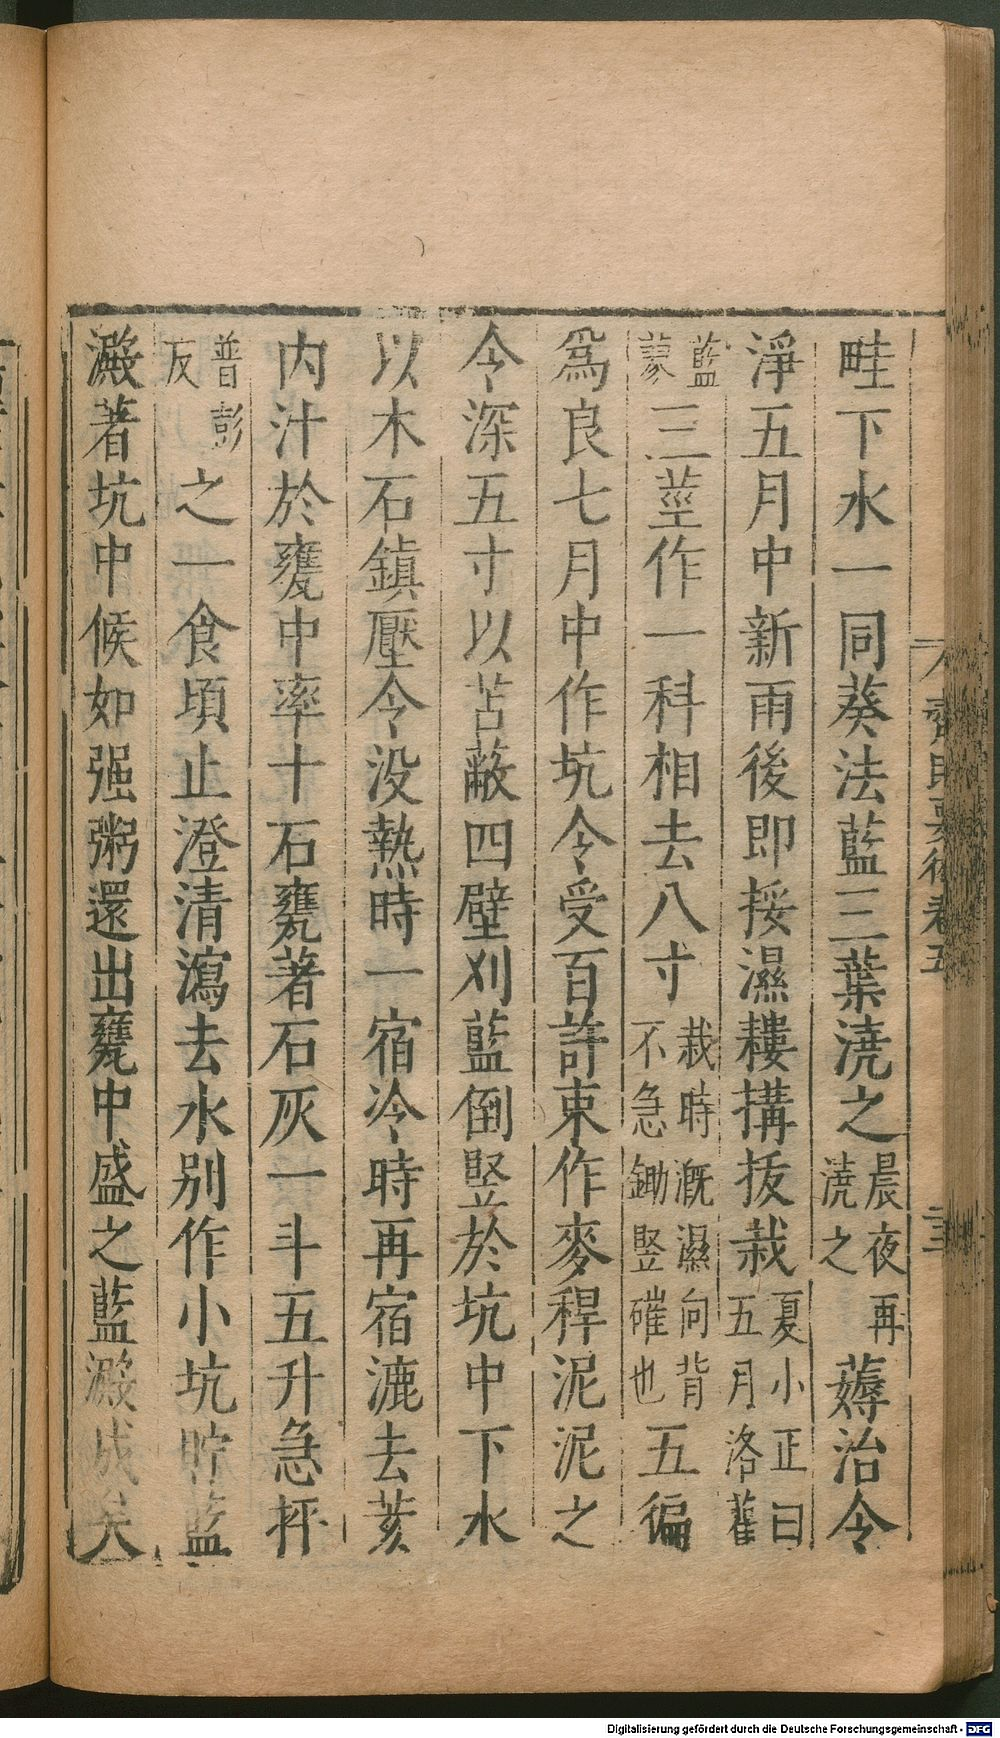 畦下水一同葵法藍三葉澆之晨夜再澆之薅治令
淨五月中新雨後即挼濕耬搆拔栽夏小正曰五月洛藋
藍蓼三莖作一科相去八寸栽時溉濕向背不急鋤堅確也五徧
爲良七月中作坑令受百許束作麥稈泥泥之
令深五寸以苫蔽四壁刈藍倒竪於坑中下水
以木石鎮壓令没熱時一宿冷時再宿漉去荄
内汁於甕中率十石甕著石灰一斗五升急抨
普彭反之一食頃止澄清瀉去水别作小坑貯藍
澱著坑中候如强粥還出甕中盛之藍澱成矣
齊民要術卷五
Digitalisierung gefördert durch die Deutsche Forschungsgemeinschaft - DFG